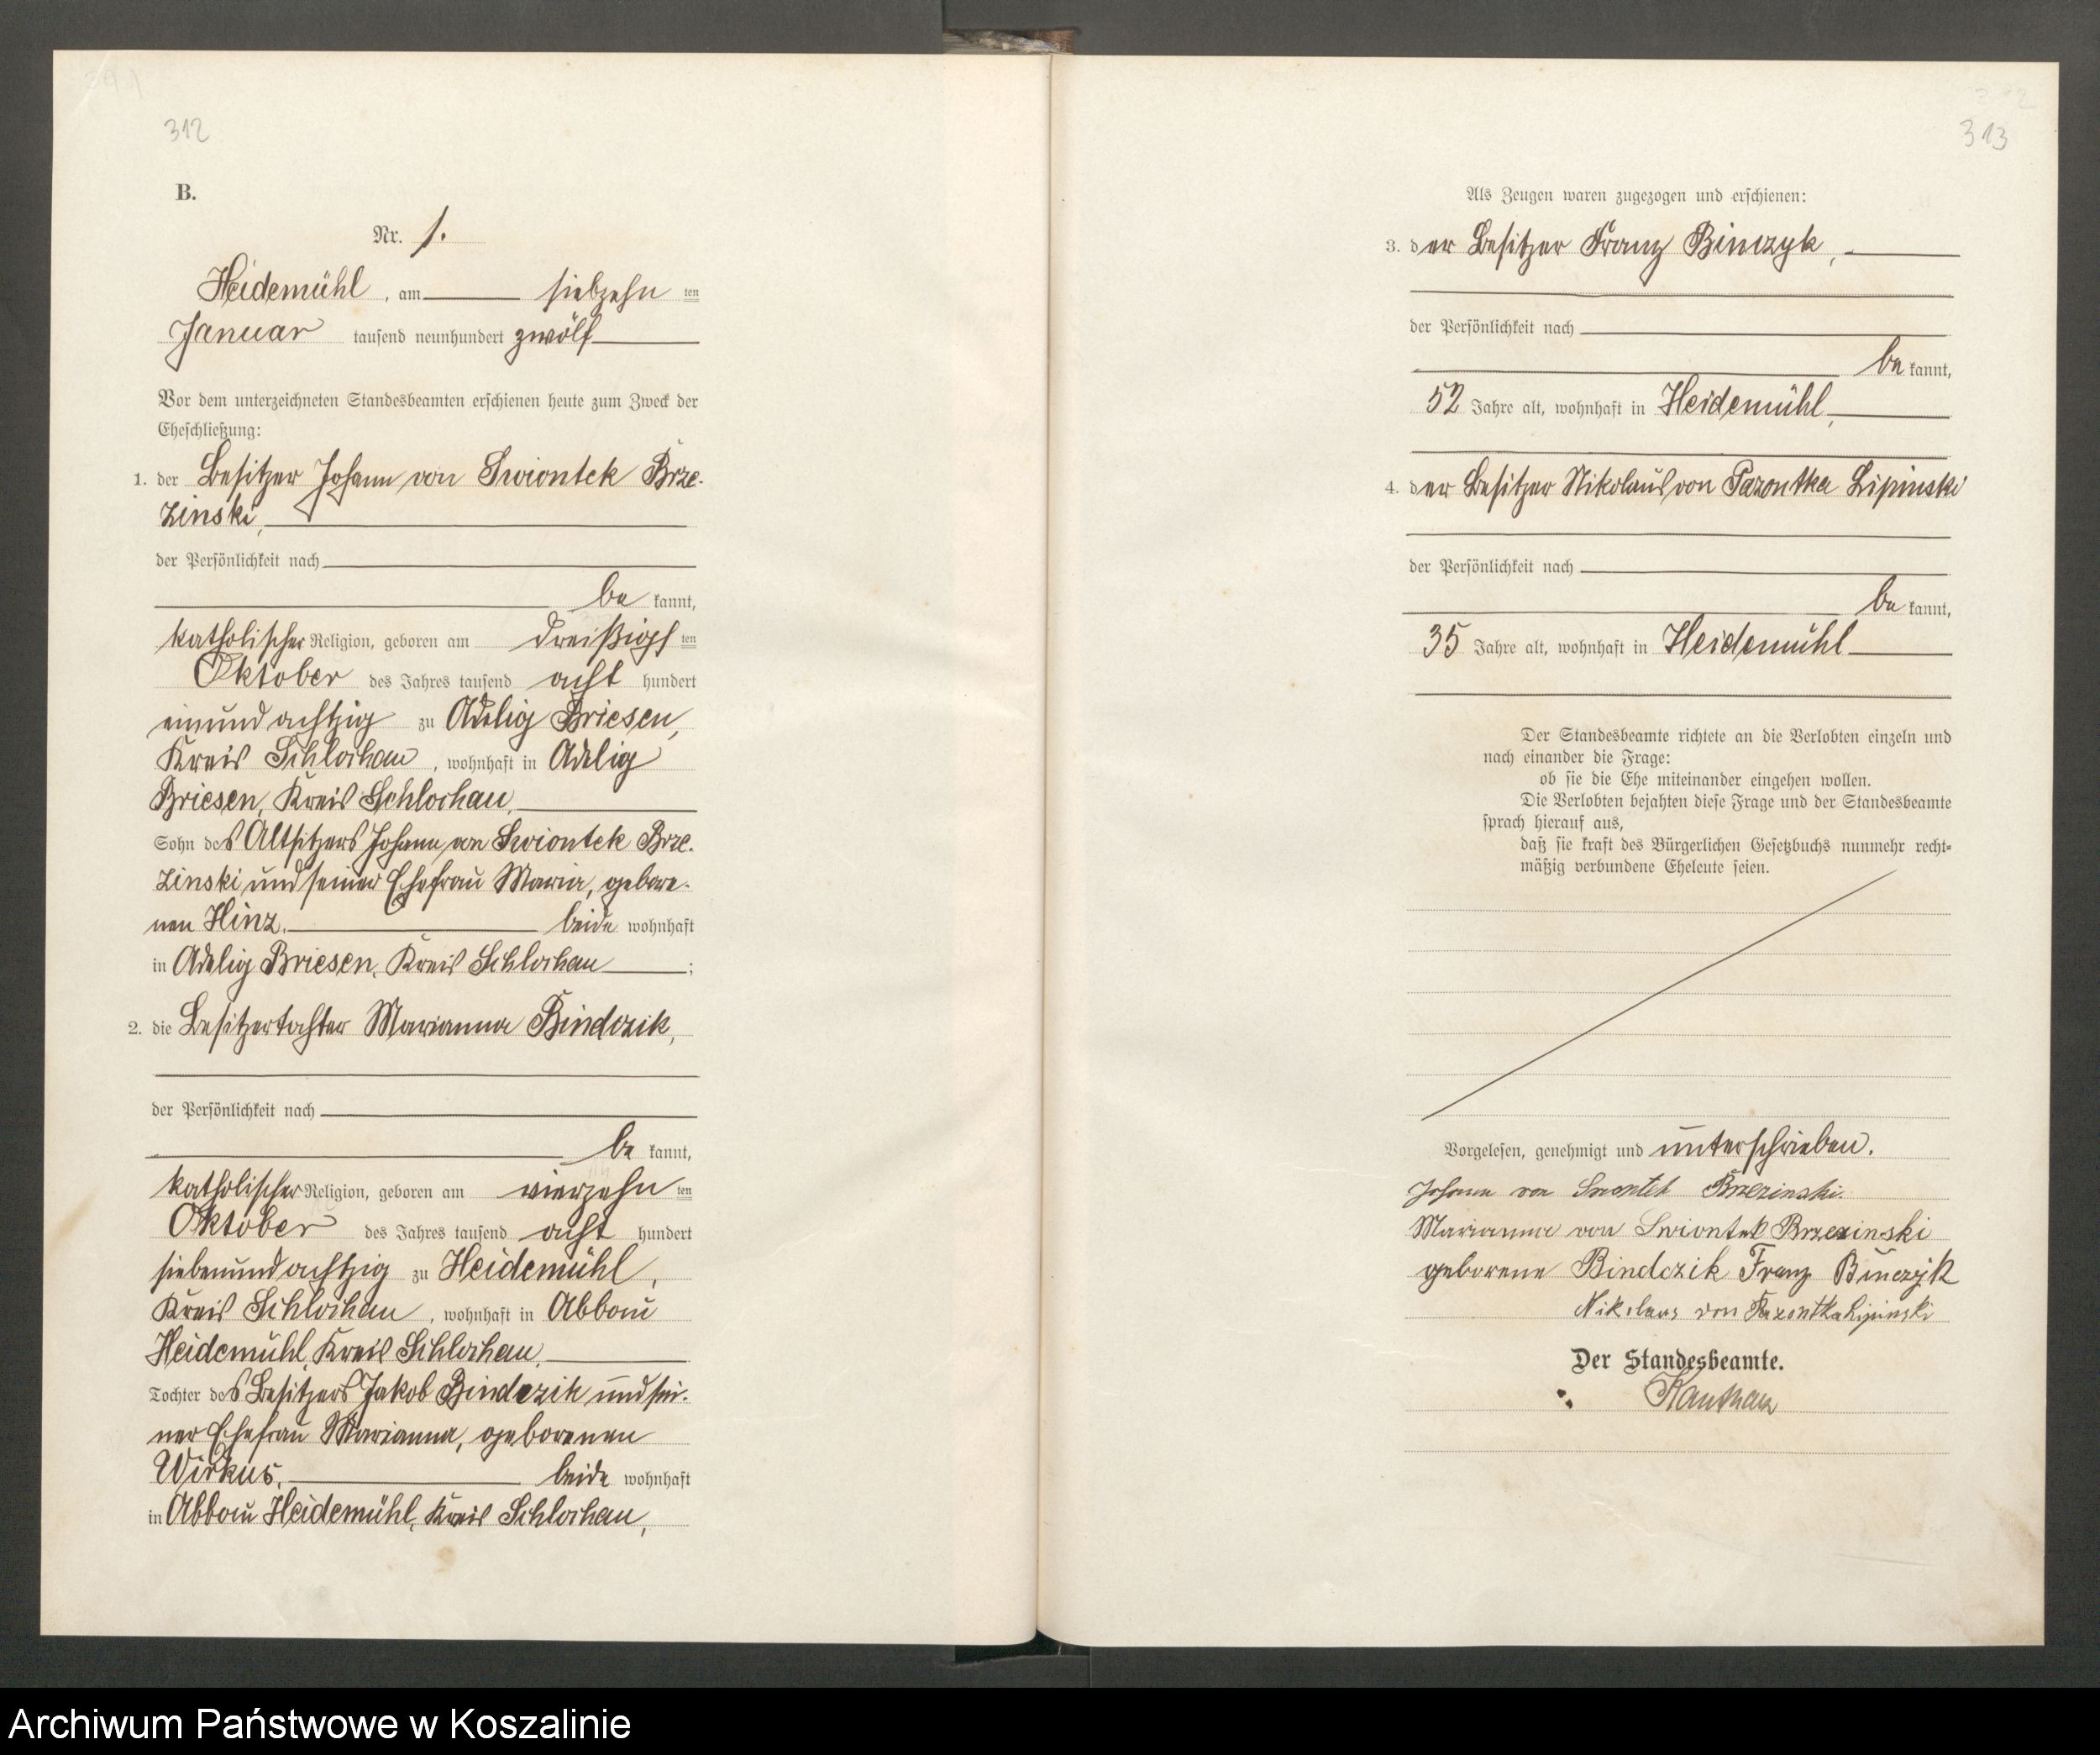 312
B.
Nr. 1.
Heidemühl, am siebzehn ten
Januar tausend neunhundert zwölf
Vor dem unterzeichneten Standesbeamten erschienen heute zum Zweck der
Eheschließung:
1. der Besitzer Johann von Swiontek Brze-
zinski,
der Persönlichkeit nach
be kannt,
katholischer Religion, geboren am dreißigst ten
Oktober des Jahres tausend acht hundert
einundachtzig zu Adelig Briesen,
Kreis Schlochau, wohnhaft in Adelig
Briesen, Kreis Schlochau,
Sohn des Altsitzers Johann von Swiontek Brze-
zinski und seiner Ehefrau Maria, gebore-
nen Hinz. beide wohnhaft
in Adelig Briesen, Kreis Schlochau ;
2. die Besitzertochter Marianna Bindczik,
der Persönlichkeit nach
be kannt,
katholischer Religion, geboren am vierzehn ten
Oktober des Jahres tausend acht hundert
siebenundachtzig zu Heidemühl,
Kreis Schlochau, wohnhaft in Abbau
Heidemühl, Kreis Schlochau,
Tochter des Besitzers Jakob Bindczik und sei-
ner Ehefrau Marianna, geborenen
Wirkus, beide wohnhaft
in Abbau Heidemühl, Kreis Schlochau,
313
Als Zeugen waren zugezogen und erschienen:
3. der Besitzer Franz Binczyk,
der Persönlichkeit nach
be kannt,
52 Jahre alt, wohnhaft in Heidemühl,
4. der Besitzer Nikolaus von Pazontka Lipinski
der Persönlichkeit nach
be kannt,
35 Jahre alt, wohnhaft in Heidemühl
Der Standesbeamte richtete an die Verlobten einzeln und
nach einander die Frage:
ob sie die Ehe miteinander eingehen wollen.
Die Verlobten bejahten diese Frage und der Standesbeamte
sprach hierauf aus,
daß sie kraft des Bürgerlichen Gesetzbuchs nunmehr recht-
mäßig verbundene Eheleute seien.
Vorgelesen, genehmigt und unterschrieben.
Johann von Swontek Brzezinski.
Marianna von Swiontek Brzezinski
geborene Bindczik Franz Binczyk
Nikolaus von Pazontka Lipinski
Der Standesbeamte.
Archiwum Państwowe w Koszalinie